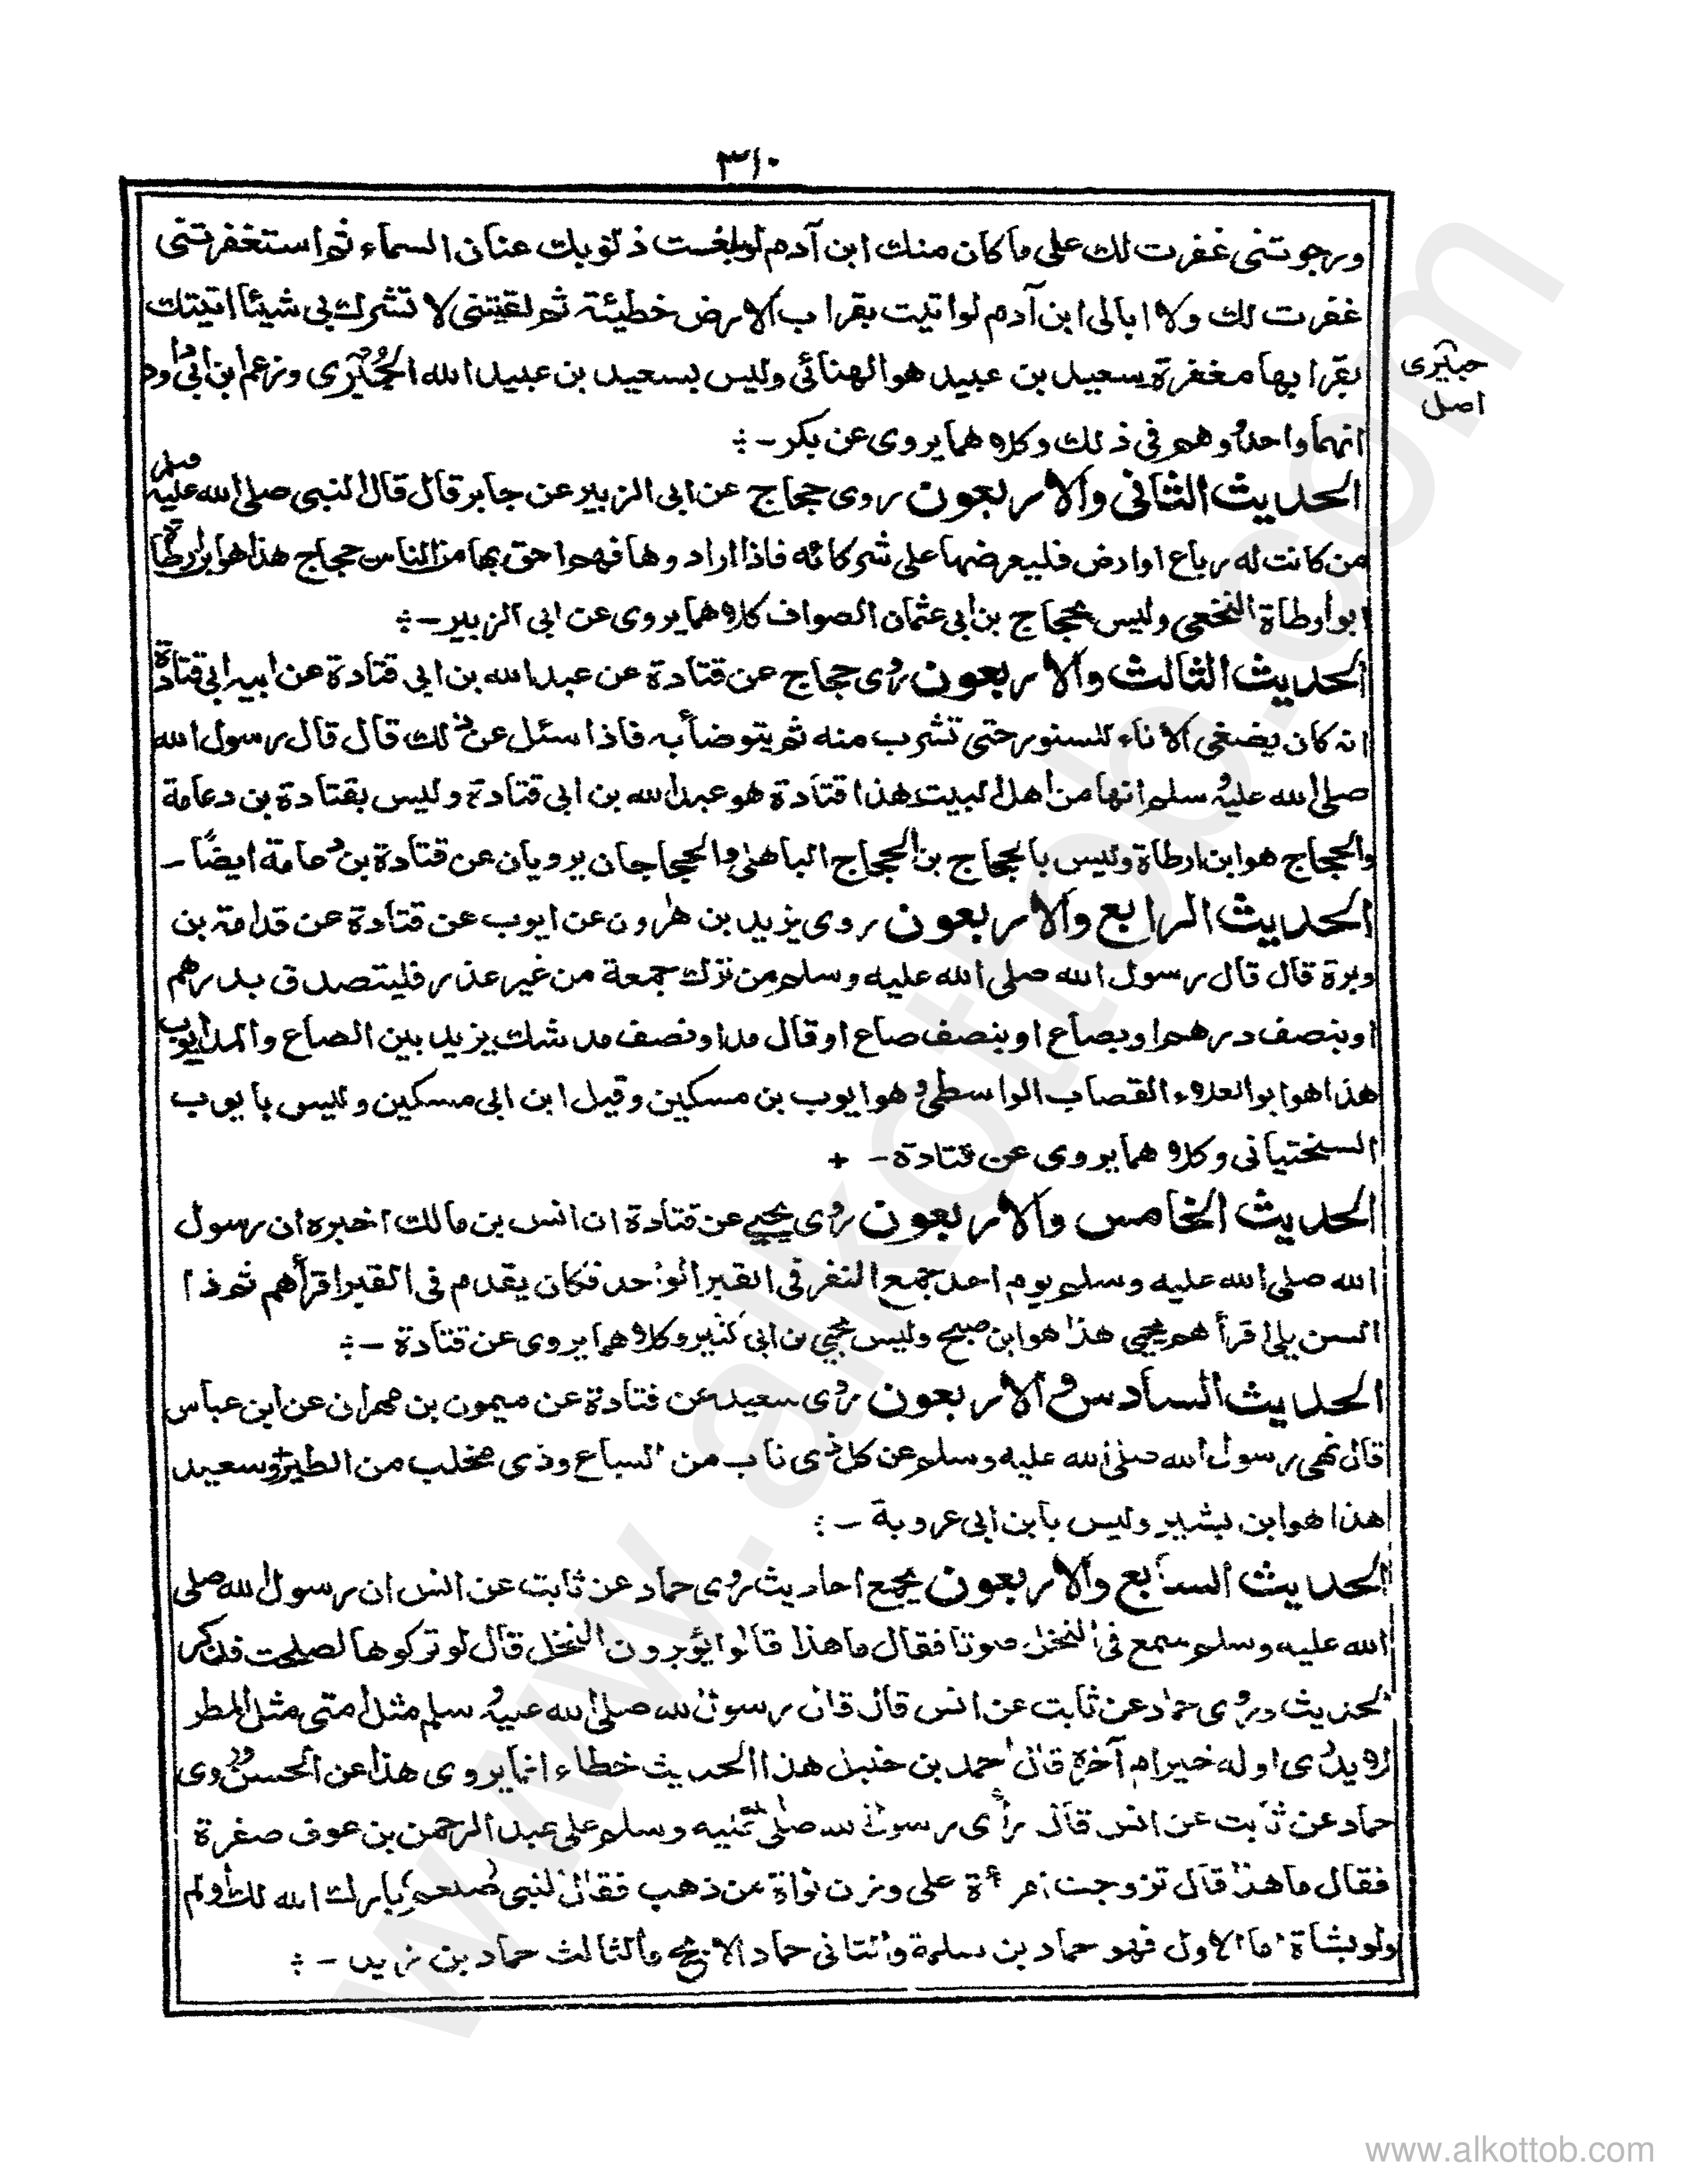 ٣١٠
ورجوتنى غفرت لك على ما كان منك ابن آدم لو بلغت ذنوبك عنان السماء ثم استغفرتنى
غفرت لك ولا ابالى ابن آدم لو اتيت بقراب الارض خطيئة ثم لقيتنى لا تشرك بى شيئا اتيتك
بقرابها مغفرة سعيد بن عبيد هو الهنائى وليس بسعيد بن عبيد الله الجُبَيرى وزعم ابن ابى داود
حبيرى
اصل
انهما واحد وهم فى ذلك وكلاهما يروى عن بكر - ؞
الحديث الثانى والاربعون روى حجاج عن ابى الزبير عن جابر قال قال النبى صلى الله عليه وسلم
من كانت له رباع او ارض فليعرضها على شركائه فاذا ارادوها فهم احق بها من الناس حجاج هذا هو ابن ارطاة
ابو ارطاة النخعى وليس بحجاج بن ابى عثمان الصواف كلاهما يروى عن ابى الزبير - ؞
الحديث الثالث والاربعون روى حجاج عن قتادة عن عبد الله بن ابى قتادة عن ابيه ابى قتادة
انه كان يضغى الاناء للسنور حتى تشرب منه ثم يتوضأ به فاذا سئل عن ذلك قال قال رسول الله
صلى الله عليه وسلم انها من اهل البيت هذا قتادة هو عبد الله بن ابى قتادة وليس بقتادة بن دعامة
والحجاج هو ابن ارطاة وليس بالحجاج بن الحجاج الباهلى والحجاجان يرويان عن قتادة بن دعامة ايضًا -
الحديث الرابع والاربعون روى يزيد بن هٰرون عن ايوب عن قتادة عن قدامة بن
وبرة قال قال رسول الله صلى الله عليه وسلم من ترك جمعة من غير عذر فليتصدق بدرهم
او بنصف درهم او بصاع او بنصف صاع او قال مد او نصف مد شك يزيد بين الصاع والمد ايوب
هذا هو ابو العلاء القصاب الواسطى وهو ايوب بن مسكين وقيل ابن ابى مسكين وليس بايوب
السختيانى وكلاهما يروى عن قتادة - +
الحديث الخامس والاربعون روى يحيى عن قتادة ان انس بن مالك اخبره ان رسول
الله صلى الله عليه وسلم يوم احد جمع النفر فى القبر الواحد فكان يقدم فى القبر اقرأهم ثم ذا
السن يلى اقرأهم يحيى هذا هو ابن صبيح وليس يحيى بن ابى كثير وكلاهما يروى عن قتادة - ؞
الحديث السادس والاربعون روى سعيد عن قتادة عن ميمون بن مهران عن ابن عباس
قال نهى رسول الله صلى الله عليه وسلم عن كل ذى ناب من السباع وذى مخلب من الطير وسعيد
هذا هو ابن بشير وليس بابن ابى عروبة - ؞
الحديث السابع والاربعون يجمع احاديث روى حماد عن ثابت عن انس ان رسول الله صلى
الله عليه وسلم سمع فى النخل صوتا فقال ما هذا قالوا يؤبرون النخل قال لو تركوها لصلحت فذكر
الحديث وروى حماد عن ثابت عن انس قال قال رسول الله صلى الله عليه وسلم مثل امتى مثل المطر
لا يدرى اوله خير ام آخره قال احمد بن حنبل هذا الحديث خطاء انما يروى هذا عن الحسن وروى
حماد عن ثابت عن انس قال رأى رسول الله صلى الله عليه وسلم على عبد الرحمن بن عوف صفرة
فقال ما هذا قال تزوجت امرأة على وزن نواة من ذهب فقال النبى صلعم بارك الله لك اولم
ولو بشاة اما الاول فهو حماد بن سلمة والثانى حماد الابح والثالث حماد بن زيد - ؞
www.alkottob.com
www.alkottob.com